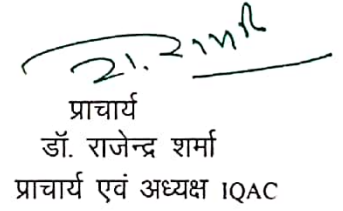 रा. शर्मा
प्राचार्य
डॉ. राजेन्द्र शर्मा
प्राचार्य एवं अध्यक्ष IQAC